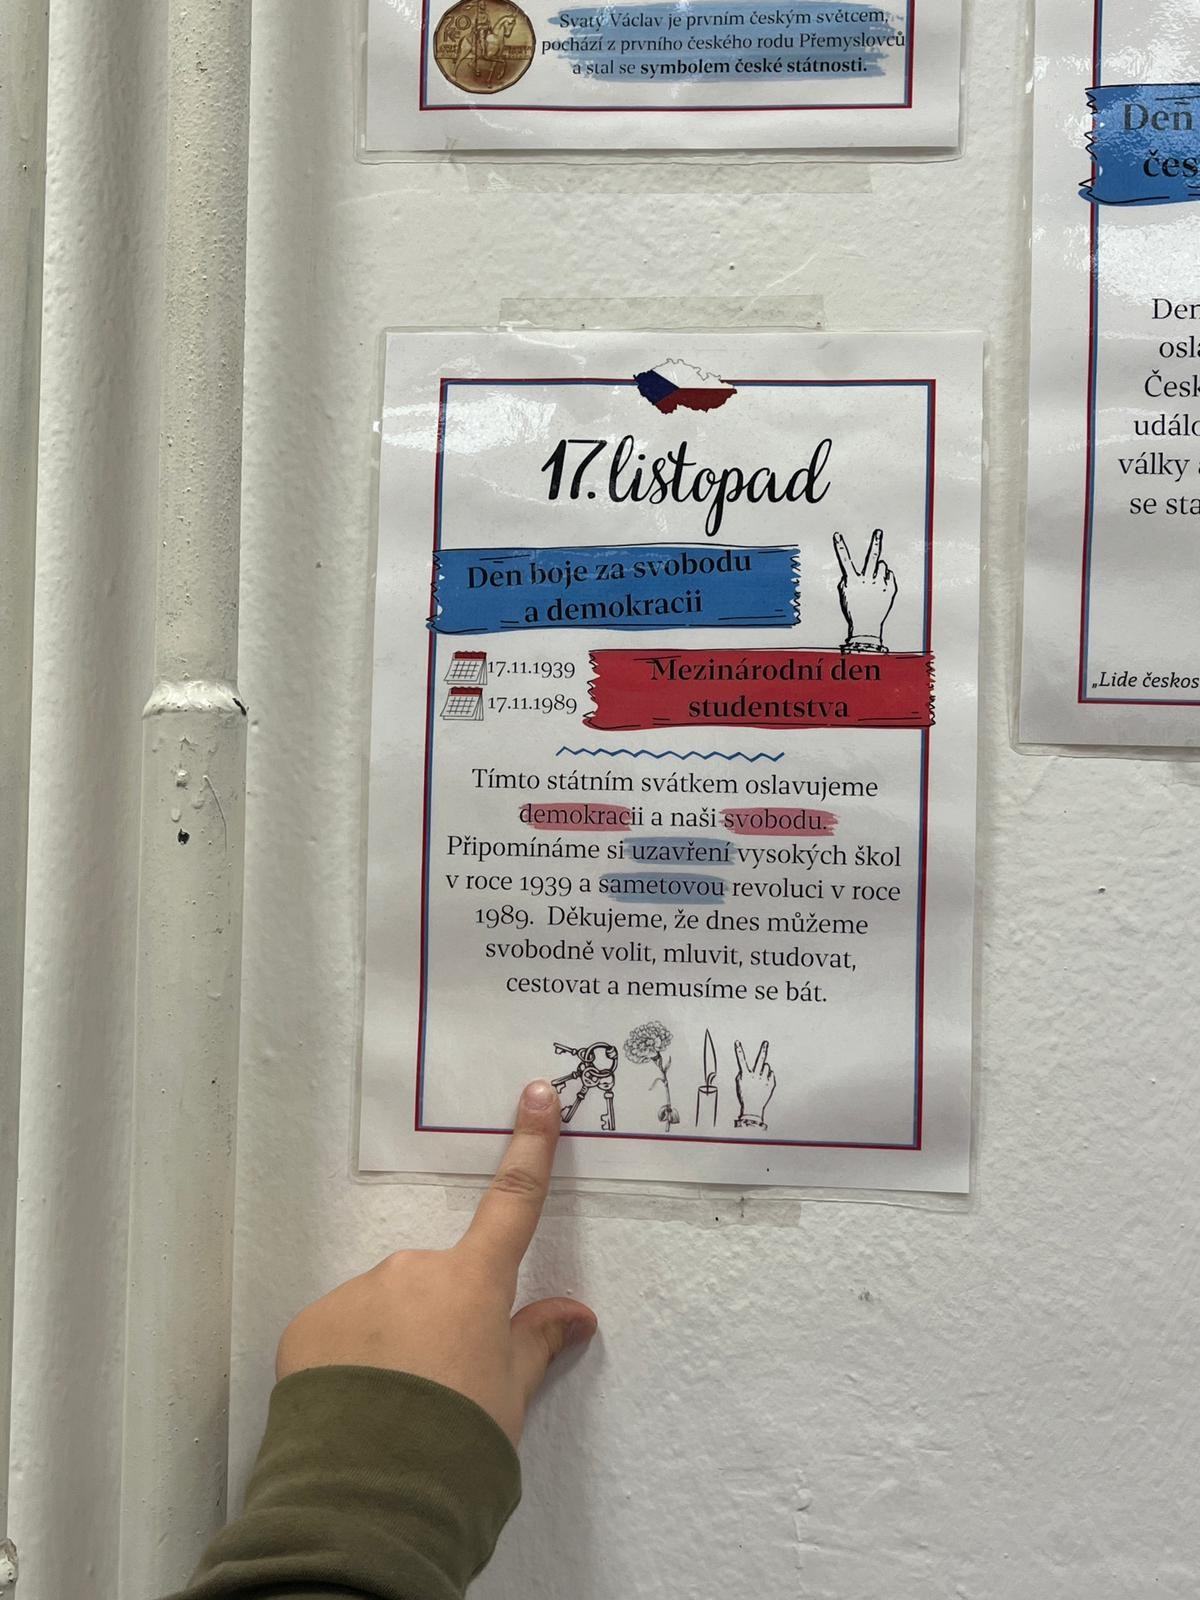 20
Kč
Svatý Václav je prvním českým světcem,
pochází z prvního českého rodu Přemyslovců
a stal se symbolem české státnosti.
17. listopad
Den boje za svobodu
a demokracii
17.11.1939
17.11.1989
Mezinárodní den
studentstva
Tímto státním svátkem oslavujeme
demokracii a naši svobodu.
Připomínáme si uzavření vysokých škol
v roce 1939 a sametovou revoluci v roce
1989. Děkujeme, že dnes můžeme
svobodně volit, mluvit, studovat,
cestovat a nemusíme se bát.
Den
čes
Den
osla
Česk
událo
války a
se sta
„Lide českos